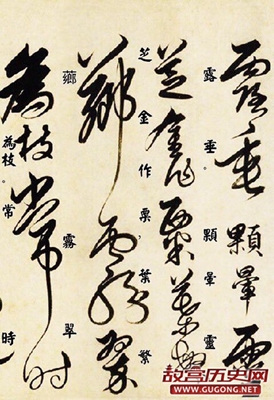 露垂顆暈靈
露垂顆暈靈
芝金作粟葉繁
芝金作粟葉繁
薌霧翠
薌霧翠
為枝常時
為枝常時
故宫历史网
WWW.GUGONG.NET